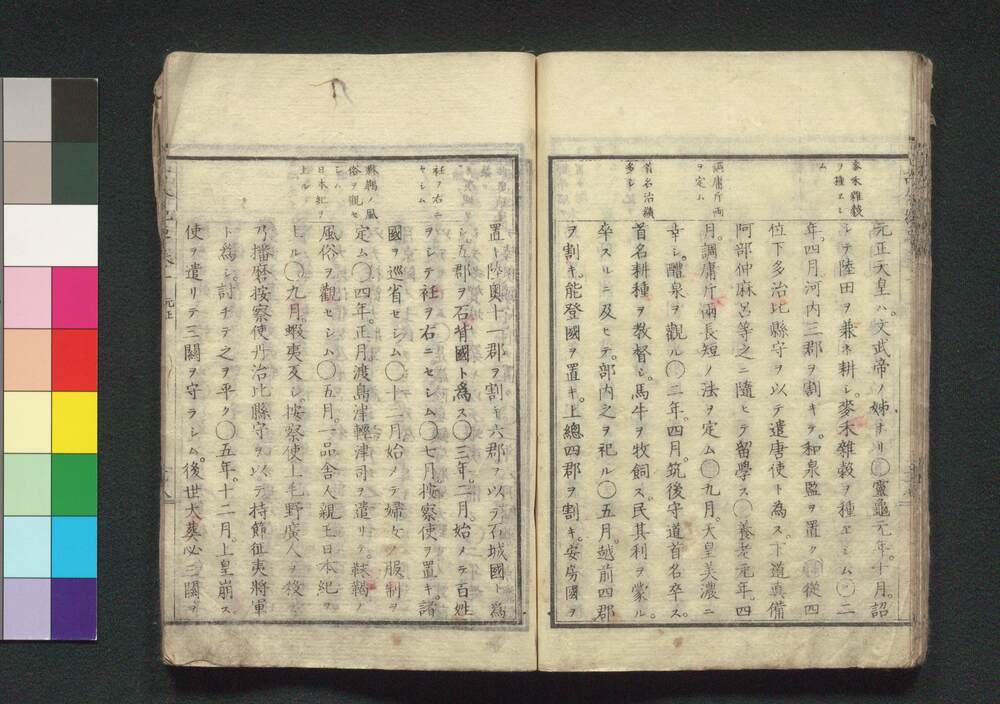 麥禾雜穀
ヲ種エシ
ム
調庸斤両
ヲ定ム
首名治績
多シ
元正天皇ハ。文武帝ノ姉ナリ〇靈龜元年。十月。詔
シテ陸田ヲ兼ネ耕シ。麥禾雜穀ヲ種エシム〇二
年。四月。河内三郡ヲ割キテ。和泉監ヲ置ク〇從四
位下多治比縣守ヲ以テ遣唐使ト為ス。下道真備
阿部仲麻呂等之ニ隨ヒテ留學ス〇養老元年。四
月。調庸斤兩長短ノ法ヲ定ム〇九月。天皇美濃ニ
幸シ。醴泉ヲ觀ル〇二年。四月。筑後守道首名卒ス。
首名耕種ヲ教督シ。馬牛ヲ牧飼ス。民其利ヲ蒙ル。
卒スルニ及ヒテ。部内之ヲ祀ル〇五月。越前四郡
ヲ割キ。能登國ヲ置キ。上總四郡ヲ割キ。安房國ヲ
社ヲ右ニ
セシム
靺鞨ノ風
俗ヲ觀セ
シム
日本紀ヲ
上ル
置キ。陸奧十一郡ヲ割キ。六郡ヲ以テ石城國ト為
シ。五郡ヲ石背國ト為ス〇三年。二月。始メテ百姓
ヲシテ衽ヲ右ニセシム〇七月。按察使ヲ置キ。諸
國ヲ巡省セシム〇十二月。始メテ婦女ノ服制ヲ
定ム〇四年。正月。渡島津輕津司ヲ遣リテ。靺鞨ノ
風俗ヲ觀セシム〇五月。一品舎人親王日本紀ヲ
上ル〇九月。蝦夷反シ。按察使上毛野廣人ヲ殺ス
乃播磨按察使丹治比縣守ヲ以テ持節征夷將軍
ト為シ。討チテ之ヲ平ク〇五年。十二月。上皇崩ス。
使ヲ遣リテ三關ヲ守ラシム。後世大葬必三關ヲ
元正